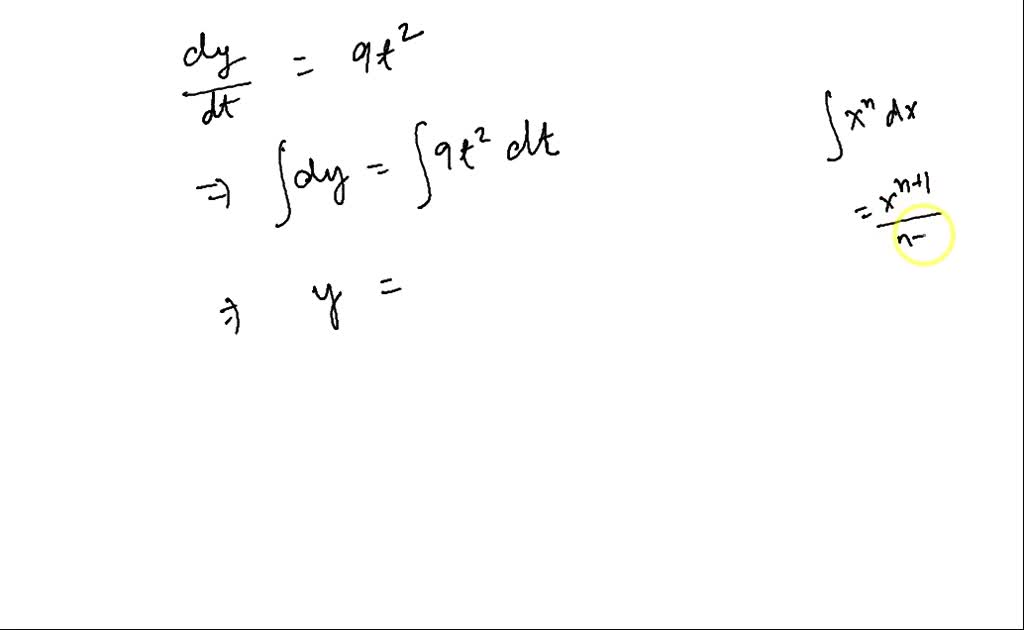 dy/dt = 9t²
⇒ ∫dy = ∫9t² dt
⇒ y =
∫xⁿ dx
= xⁿ⁺¹/n-